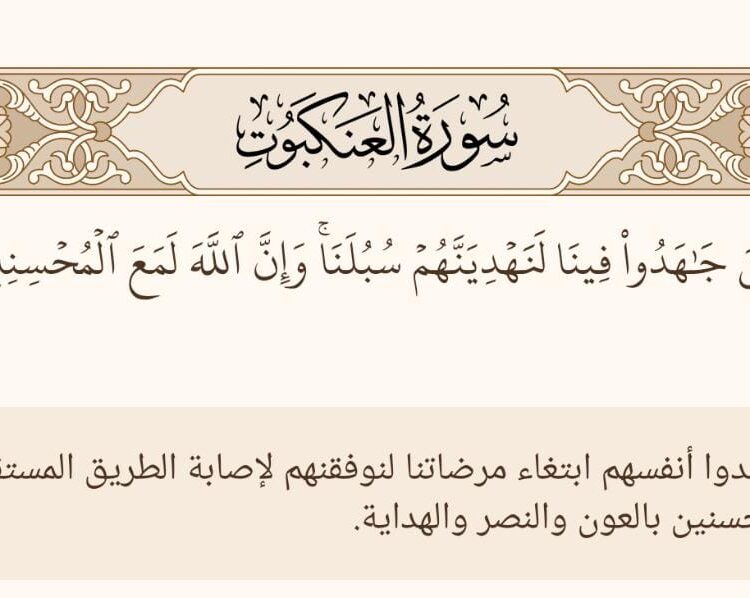 سُورَةُ العَنكَبُوتِ
جَٰهَدُوا۟ فِينَا لَنَهْدِيَنَّهُمْ سُبُلَنَا ۚ وَإِنَّ ٱللَّهَ لَمَعَ
أنفسهم ابتغاء مرضاتنا لنوفقنهم لإصابة الطريق
بالعون والنصر والهداية.